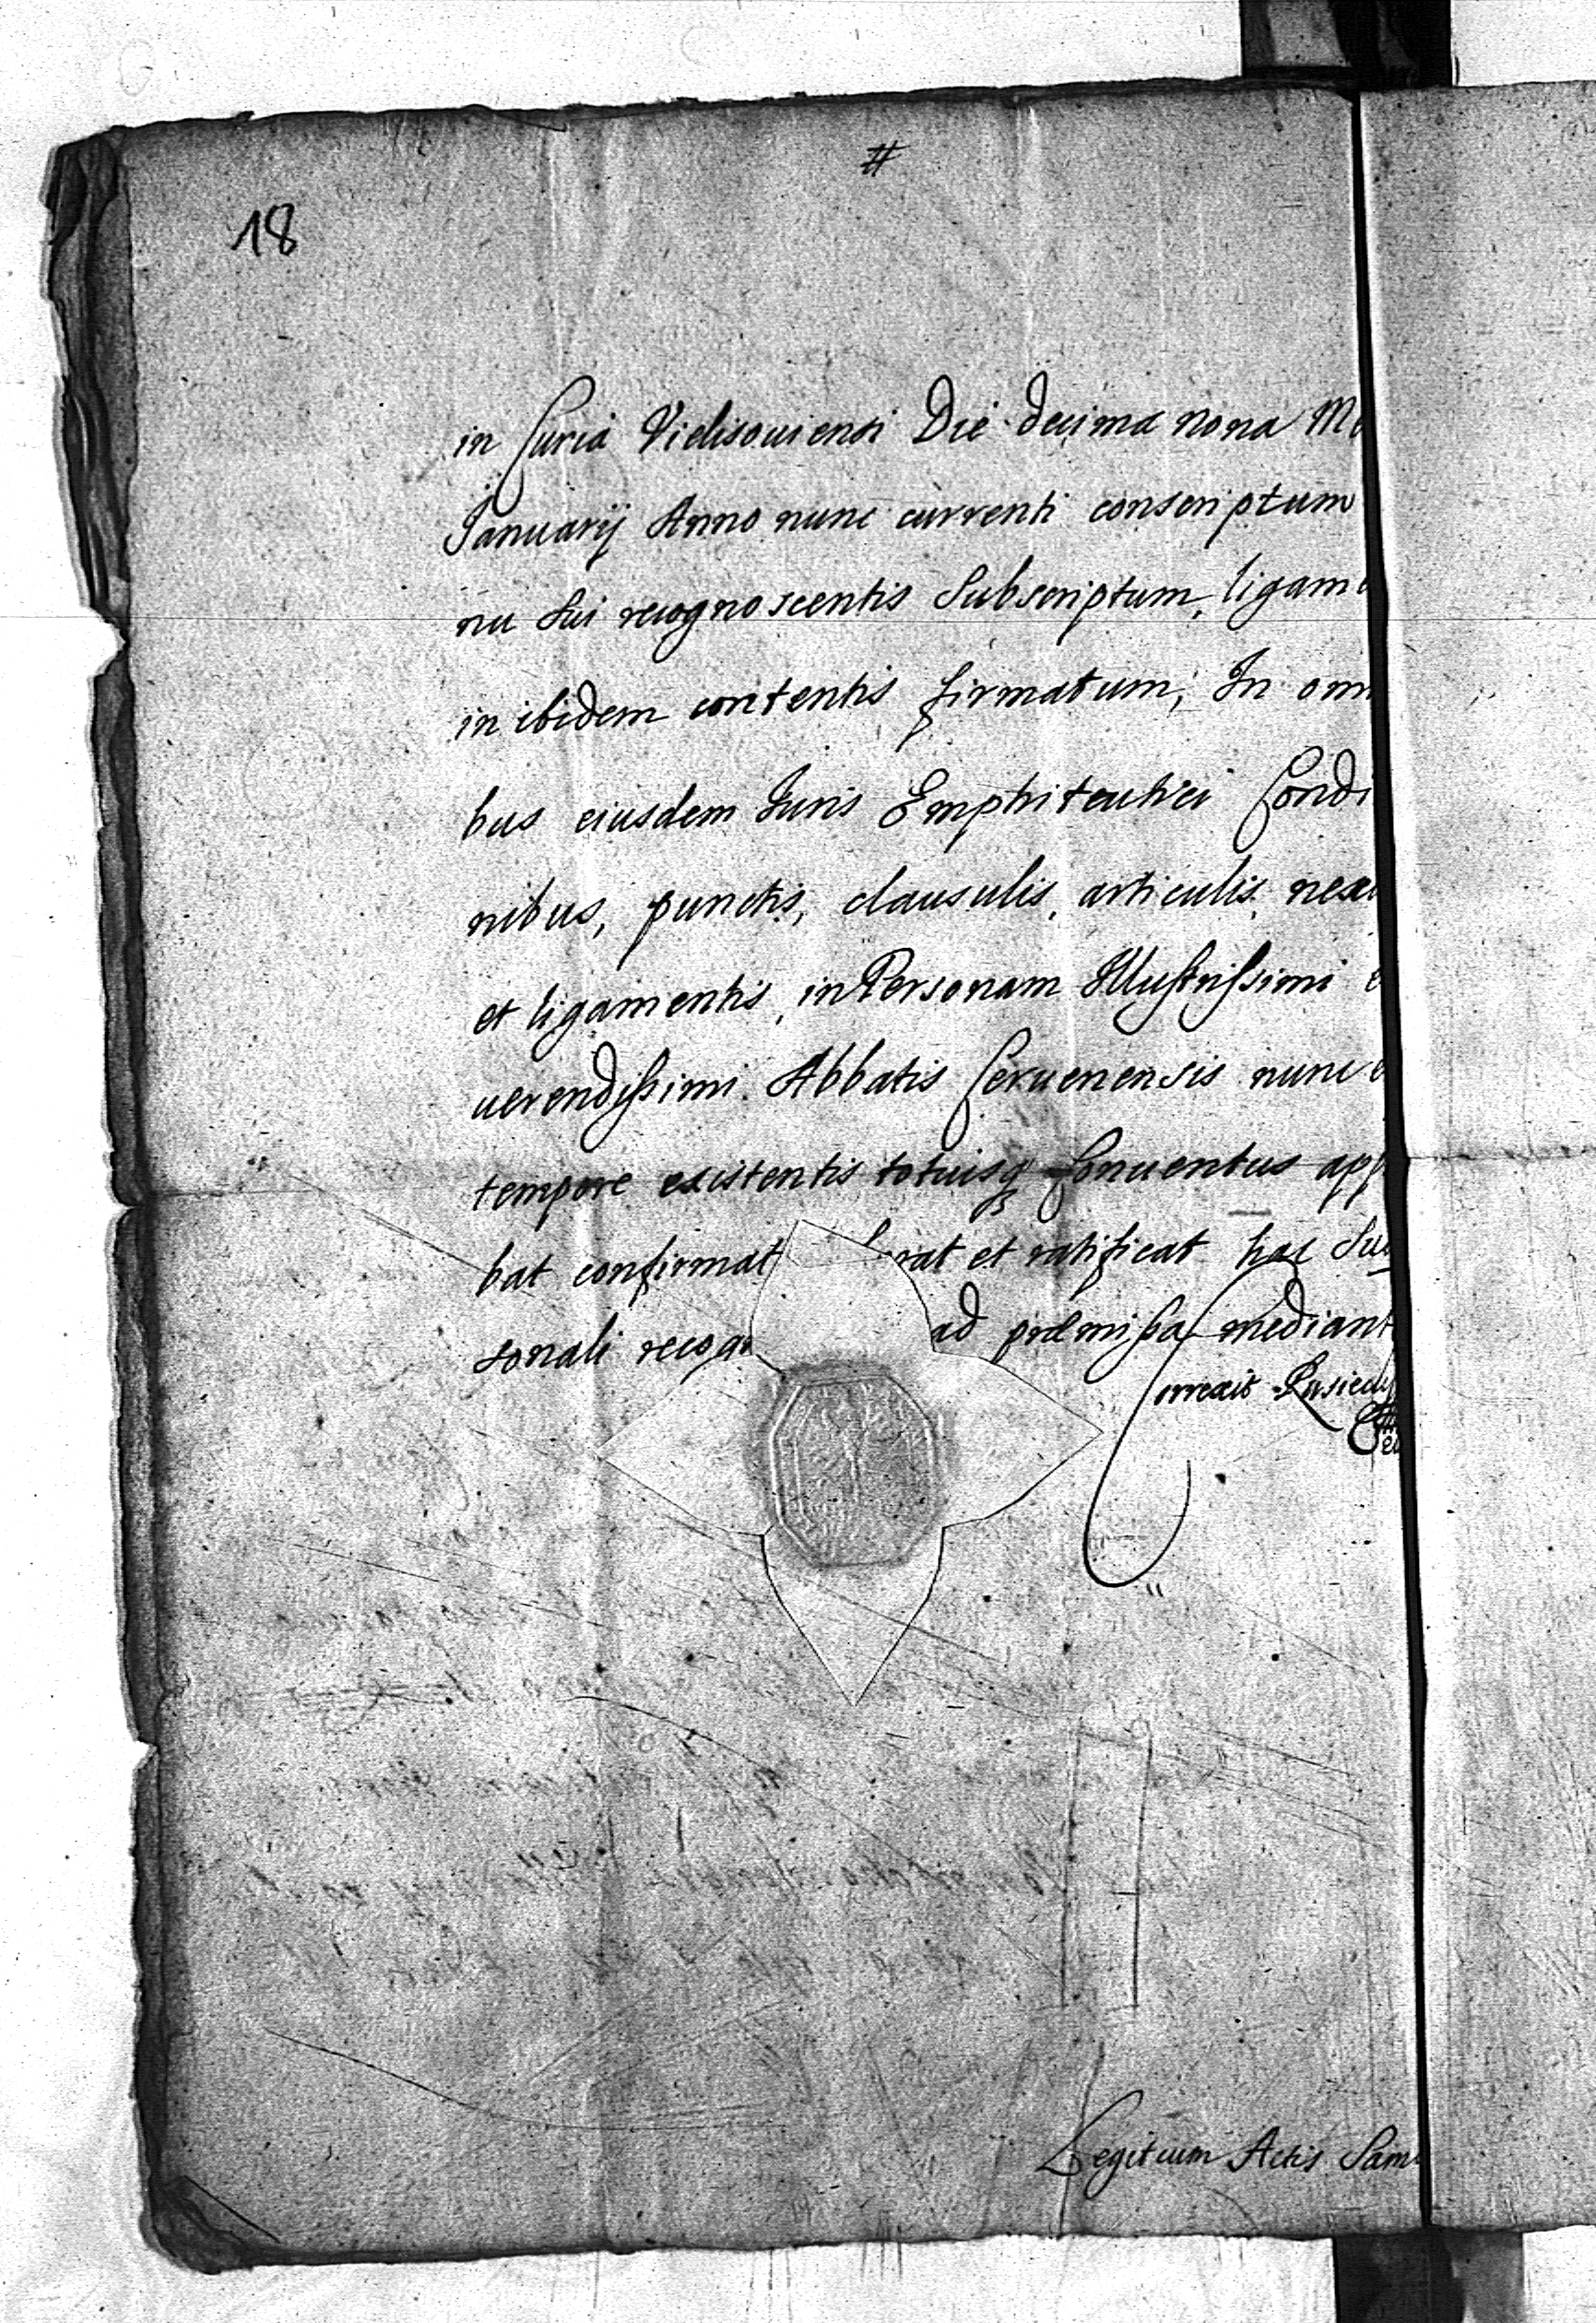 #
18
in Curia Vielisouiensi Die decima nona M
Januarij Anno nunc currenti conscriptum
nu sui recognoscentis Subscriptum, ligam
in ibidem contentis firmatum, In om
bus eiusdem Iuris Emphiteutici Condi
nibus, punctis, clausulis, articulis, nex
et ligamentis, in Personam Illustrissimi
uerendissimi Abbatis Ceruenensis nunc
tempore existentis totuisq Conuentus app
bat confirmat rat et ratificat hac Su
sonali recog ad præmissa mediant
Correxit
Legit cum Actis Sam